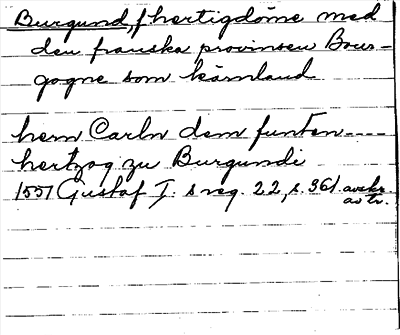 Burgund, f hertigdöme med
den franska provinsen Bour-
gogne som kärnland
hern Carln dem funten----
hertzog zu Burgundi
1551 Gustaf I. s reg. 22, s. 361. avskr.
av tr.